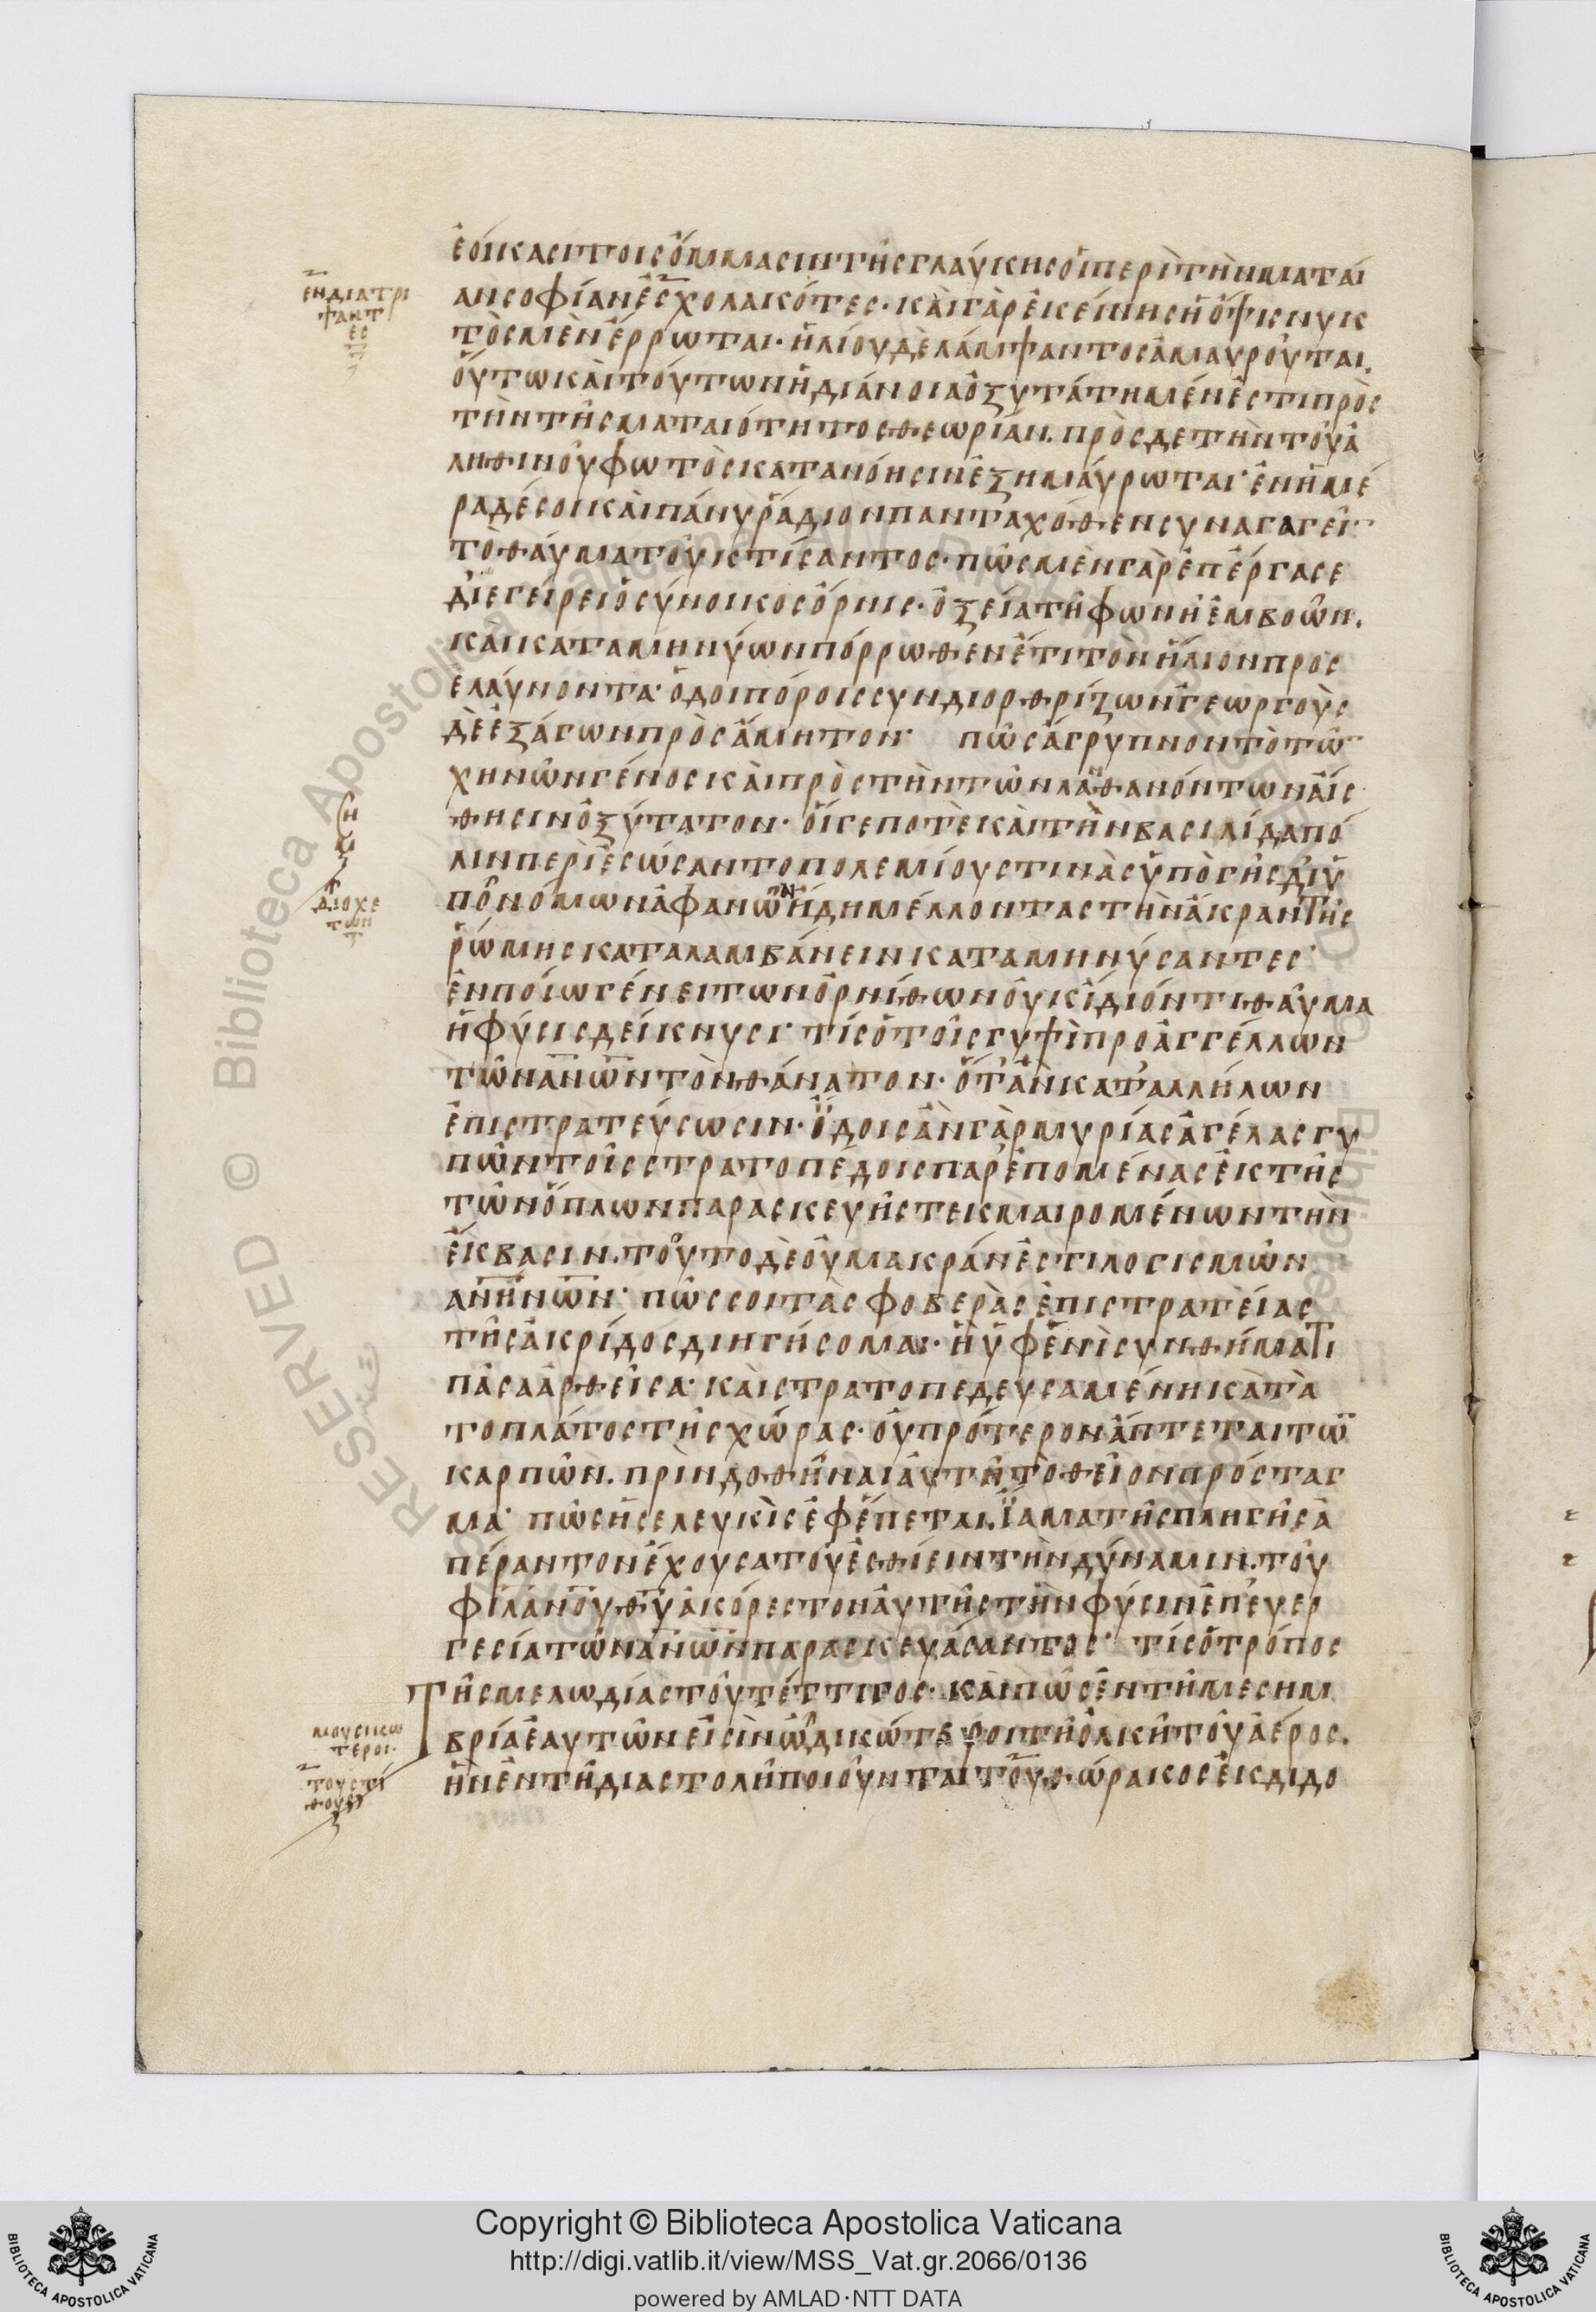 ἐοίκασι τοις ὄμμασιν τῆς γλαύκης οἱ περὶ τὴν ματαί
αν σοφίαν ἐσχολακότες· καὶ γὰρ ἐκείνης ἡ ὄψις νυκ
τὸς μὲν ἔρρωται· ἡλίου δὲ λάμψαντος ἀμαυροῦται.
οὕτω καὶ τούτων ἡ διάνοια ὀξυτάτη μέν ἐστι πρὸς
τὴν τῆς ματαιότητος θεωρίαν. πρὸς δε τὴν τοῦ ἀ
ληθινοῦ φωτὸς κατανόησιν ἐξημαύρωται· ἐν ἡμέ
ρα δέ σοι καὶ πάνυ ῥάδιον πανταχόθεν συναγαγεῖ
το θαῦμα τοῦ κτίσαντος· πῶς μὲν γὰρ ἐπ ἔργα σε
διεγείρει ὁ σύνοικος ὄρνις· ὀξεία τῆ φωνῆ ἐμβοῶν.
καὶ καταμηνύων πόρρωθεν ἔτι τὸν ἥλιον προς
ελαύνοντα· ὁδοιπόροις συνδιορθρίζων· γεωργοὺς
δὲ ἐξάγων πρὸς ἄμητον· πῶς ἄγρυπνον τὸ τῶ
χηνῶν γένος καὶ πρὸς τὴν τῶν λανθανόντων αἴσ
θησιν ὀξύτατον· οἵ γε ποτὲ καὶ τὴν βασιλίδα πό
λιν περιεσώσαντο πολεμίους τινὰς ὑπὸ γῆς δι ὑ
πονόμων ἀφανῶν ἤδη μέλλοντας τὴν ἄκραν τῆς
ῥώμης καταλαμβάνειν καταμηνύσαντες·
ἐν ποίω γένει των ὀρνίθων οὐκ ἴδιόν τι θαῦμα
ἡ φύσις δείκνυσι· τίς ὁ τοῖς γυψὶ προαγγέλλων
τῶν ανων τὸν θάνατον· ὅτ' ἂν κατ' αλλήλων
ἐπιστρατεύσωσιν· ἴδοις ἂν γὰρ μυρίας ἀγέλας γυ
πῶν τοῖς στρατοπέδοις παρεπομένας ἐκ τῆς
τῶν ὅπλων παρασκευῆς τεκμαιρομένων τὴν
ἔκβασιν. τοῦτο δὲ οὐ μακράν ἐστι λογισμῶν
ανηνων· πῶς σοι τὰς φοβερὰς ἐπιστρατείας
τῆς ἀκρίδος διηγήσομαι· ἣ ὑφ ἑνὶ συνθήματι
πᾶσα ἀρθεῖσα· καὶ στρατοπεδευσαμένη κατὰ
το πλάτος τῆς χώρας· οὐ πρότερον ἅπτεται τῶ
καρπῶν. πρὶν δοθῆναι ἀυτῆ τὸ θεῖον πρόσταγ
μα· πῶς ἡ σελευκὶς ἐφέπεται. ἴαμα τῆς πληγῆς ἀ
πέραντον ἔχουσα τοῦ ἐσθίειν τὴν δύναμιν. τοῦ
φιλανου θυ ἀκόρεστον ἀυτῆς τὴν φύσιν ἐπ' ευερ
γεσία τῶν ανων παρασκευάσαντος· τίς ὁ τρόπος
Τῆς μελωδίας τοῦ τέττιγος· καὶ πῶς ἐν τῆ μεσημ
βρία ἑαυτῶν εἰσὶν ὠδικώτεροι τῆ ὁλκῆ τοῦ ἀέρος.
ἣν ἐν τῆ διαστολῆ ποιοῦνται τοῦ θώρακος ἐκδιδο
ενδιατρι
ψαντ
ες
διοχε
των
μουσικω
τεροι·
του στή
θους